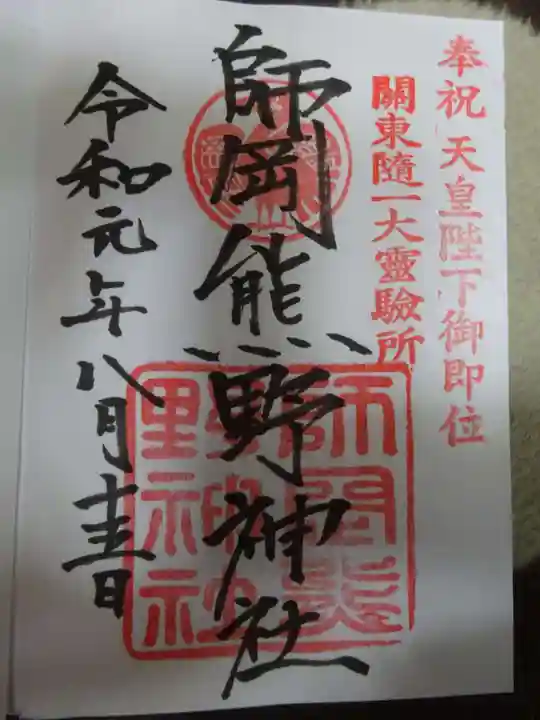 奉祝 天皇陛下御即位
關東隨一大靈驗所
師岡熊野神社
師岡熊野神社
令和元年八月十五日